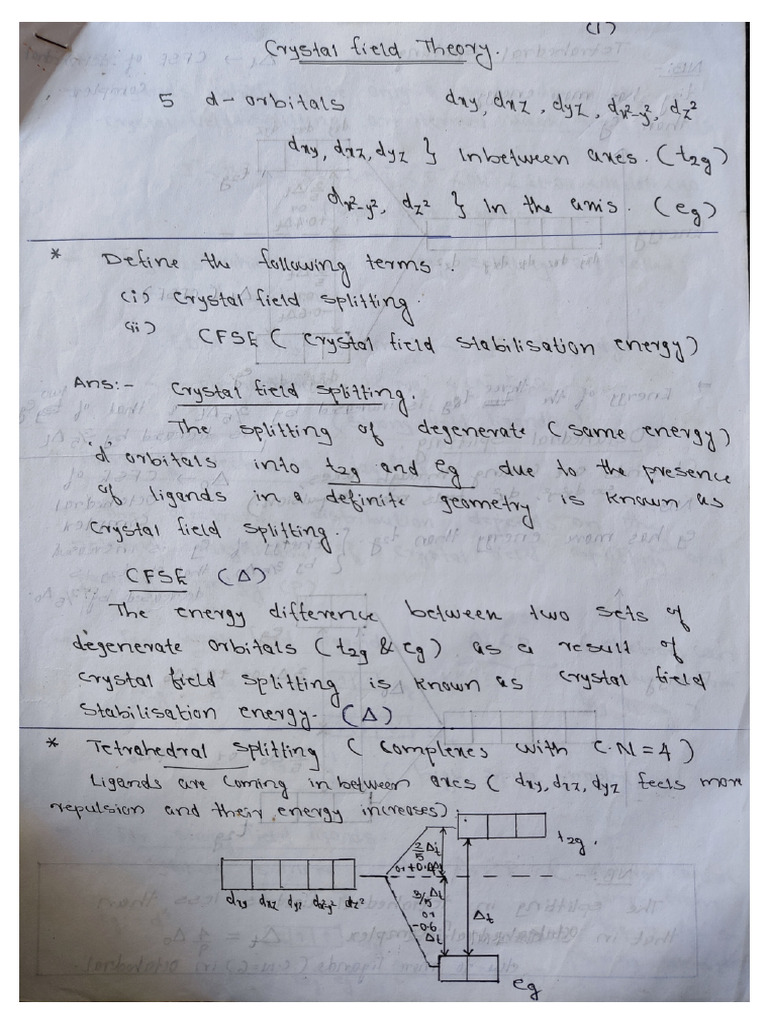 (1)
Crystal field Theory.
5 d-orbitals dxy, dxz, dyz, dx²-y², dz²
dxy, dxz, dyz } inbetween axes. (t2g)
dx²-y², dz² } in the axis. (eg)
* Define the following terms.
(i) Crystal field splitting.
(ii) CFSE ( Crystal field stabilisation energy)
Ans:- Crystal field splitting.
The splitting of degenerate (same energy)
'd' orbitals into t2g and eg due to the presence
of ligands in a definite geometry is known as
Crystal field splitting.
CFSE (Δ)
The energy difference between two sets of
degenerate orbitals (t2g & eg) as a result of
crystal field splitting is known as crystal field
stabilisation energy. (Δ)
* Tetrahedral splitting ( Complexes with C.N=4 )
Ligands are coming in between axes ( dxy, dxz, dyz feels more
repulsion and their energy increases)
t2g.
2/5 Δt
or +0.4Δt
dxy dxz dyz dx²-y² dz²
3/5 Δt
or
-0.6
Δt
Δt
eg